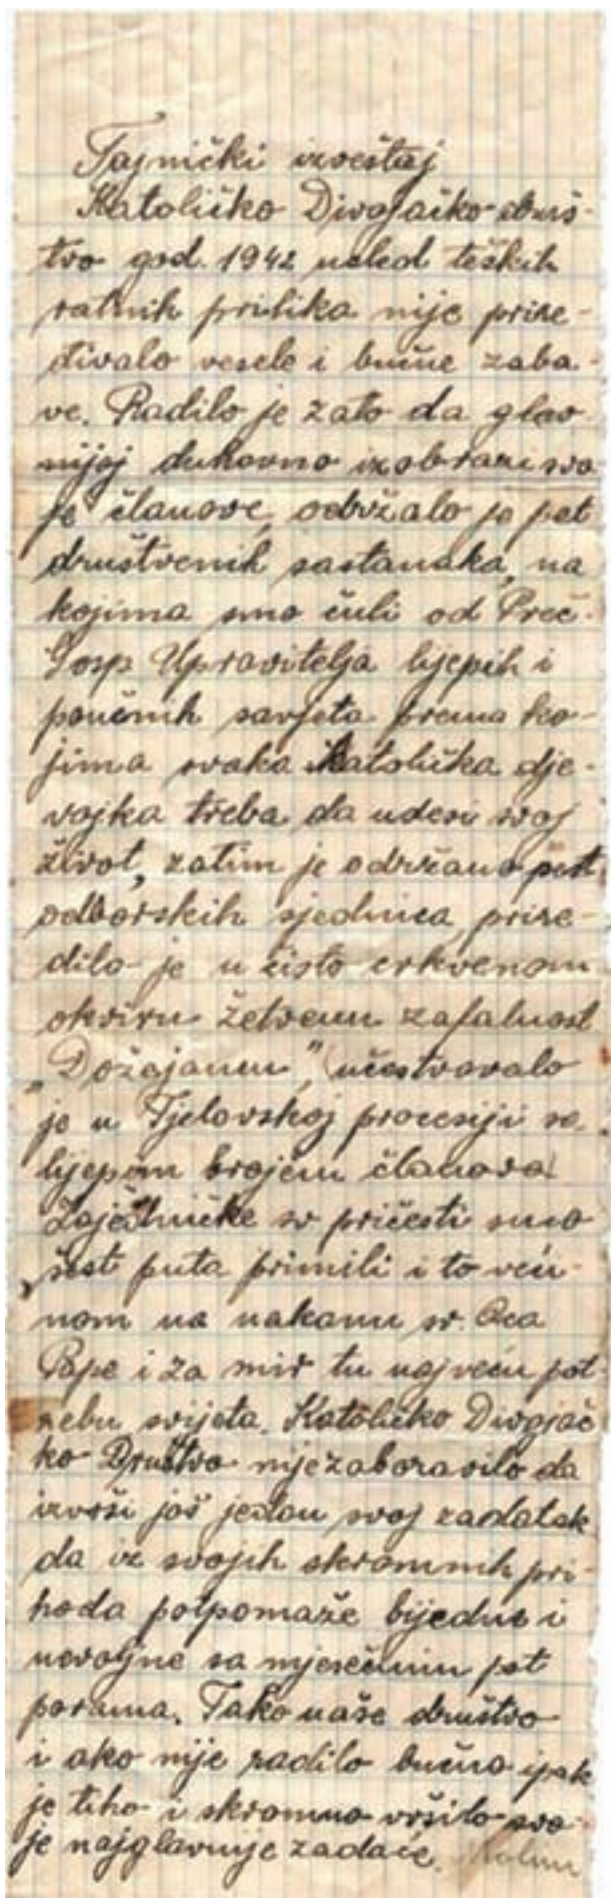 Tajnički izveštaj
Katoličko Divojačko druš-
tvo god. 1942 usled teških
ratnih prilika nije prire-
đivalo vesele i bučne zaba-
ve. Radilo je zato da glav
nijoj duhovno izobrazi svo
je članove, održalo je pet
društvenih sastanaka, na
kojima smo čuli od Preč.
Gosp Upravitelja lijepih i
poučnih savjeta prema ko-
jima svaka katolička dje-
vojka treba da udesi svoj
život, zatim je održano pest
odborskih sjednica, prire-
dilo je u čisto crkvenom
okviru žetvenu zafalnost
„Dožajancu", učestvovalo
je u Tjelovskoj procesiji sa
lijepim brojem članova.
Zajedničke sv pričesti smo
šest puta primili i to veći-
nom na nakanu sv. Oca
Pape i za mir tu najveću pot
rebu svijeta. Katoličko Divojač
ko Društvo nije zaboravilo da
izvrši još jedan svoj zadatak
da iz svojih skromnih pri-
hoda potpomaže bijedne i
nevoljne sa mjesečnim pot
porama. Tako naše društvo
i ako nije radilo bučno ipak
je tiho i skromno vršilo svo-
je najglavnije zadaće.